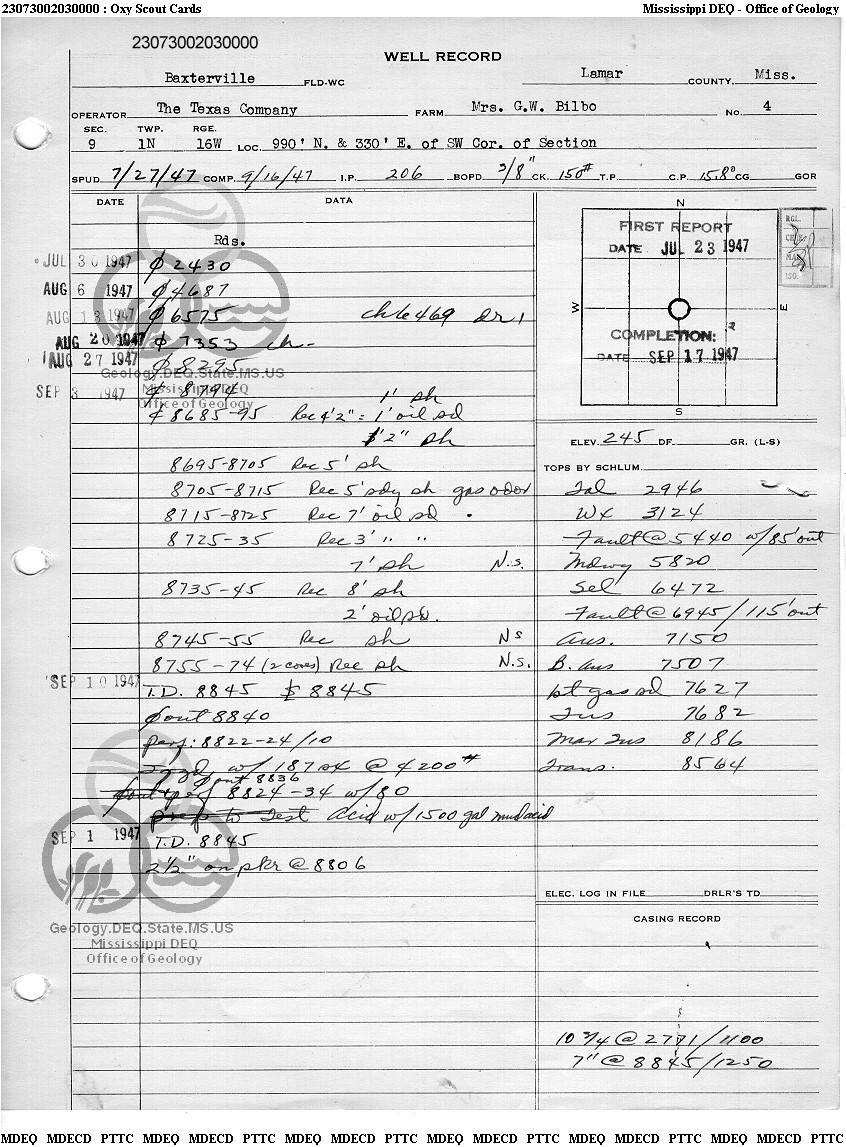 23073002030000 : Oxy Scout Cards Mississippi DEQ - Office of Geology
23073002030000
WELL RECORD
Baxterville FLD-WC Lamar COUNTY, Miss.
OPERATOR The Texas Company FARM Mrs. G.W. Bilbo NO. 4
SEC. TWP. RGE.
9 1N 16W LOC. 990' N. & 330' E. of SW Cor. of Section
SPUD 7/27/47 COMP. 9/16/47 I.P. 206 BOPD 3/8" CK. 150# T.P. C.P. 15.8° CG GOR
DATE DATA
Rds.
JUL 30 1947 ¢ 2430
AUG 6 1947 ¢ 4687
AUG 13 1947 ¢ 6575
AUG 20 1947 ¢ 7353 ch-
AUG 27 1947 ¢ 8295
SEP 3 1947 ¢ 8794 1' sh
¢ 8685-95 Rec 4'2" = 1' oil sd
1'2" sh
8695-8705 Rec 5' sh
8705-8715 Rec 5' sdy sh gas odor
8715-8725 Rec 7' oil sd
8725-35 Rec 3' " "
7' sh N.s.
8735-45 Rec 8' sh
2' oil sd.
8745-55 Rec sh NS
8755-74 (2 cores) Rec sh N.S.
SEP 10 1947 T.D. 8845 $ 8845
¢ out 8840
perf: 8822-24/10
Sqzd w/ 187 sx @ 4200#
¢ out 8836
perf 8824-34 w/80
prep to Test acid w/1500 gal mud acid
SEP 1 1947 T.D. 8845
2 1/2" on pkr @ 8806
Geology.DEQ.State.MS.US
Mississippi DEQ
Office of Geology
Geology.DEQ.State.MS.US
Mississippi DEQ
Office of Geology
N
FIRST REPORT
DATE JUL 23 1947
W E
COMPLETION:
DATE SEP 17 1947
S
ELEV. 245 DF. GR. (L-S)
TOPS BY SCHLUM.
Tal 2946
Wx 3124
Fault @ 5440 w/85' out
Mdwy 5820
Sel 6472
Fault @ 6945/115' out
Aus. 7150
B. Aus 7507
1st gas sd 7627
Tus 7682
Mar Tus 8186
Trans. 8564
ELEC. LOG IN FILE DRLR'S TD
CASING RECORD
10 3/4 @ 2771/1100
7" @ 8845/1250
MDEQ MDECD PTTC MDEQ MDECD PTTC MDEQ MDECD PTTC MDEQ MDECD PTTC MDEQ MDECD PTTC MDEQ MDECD PTTC MDEQ